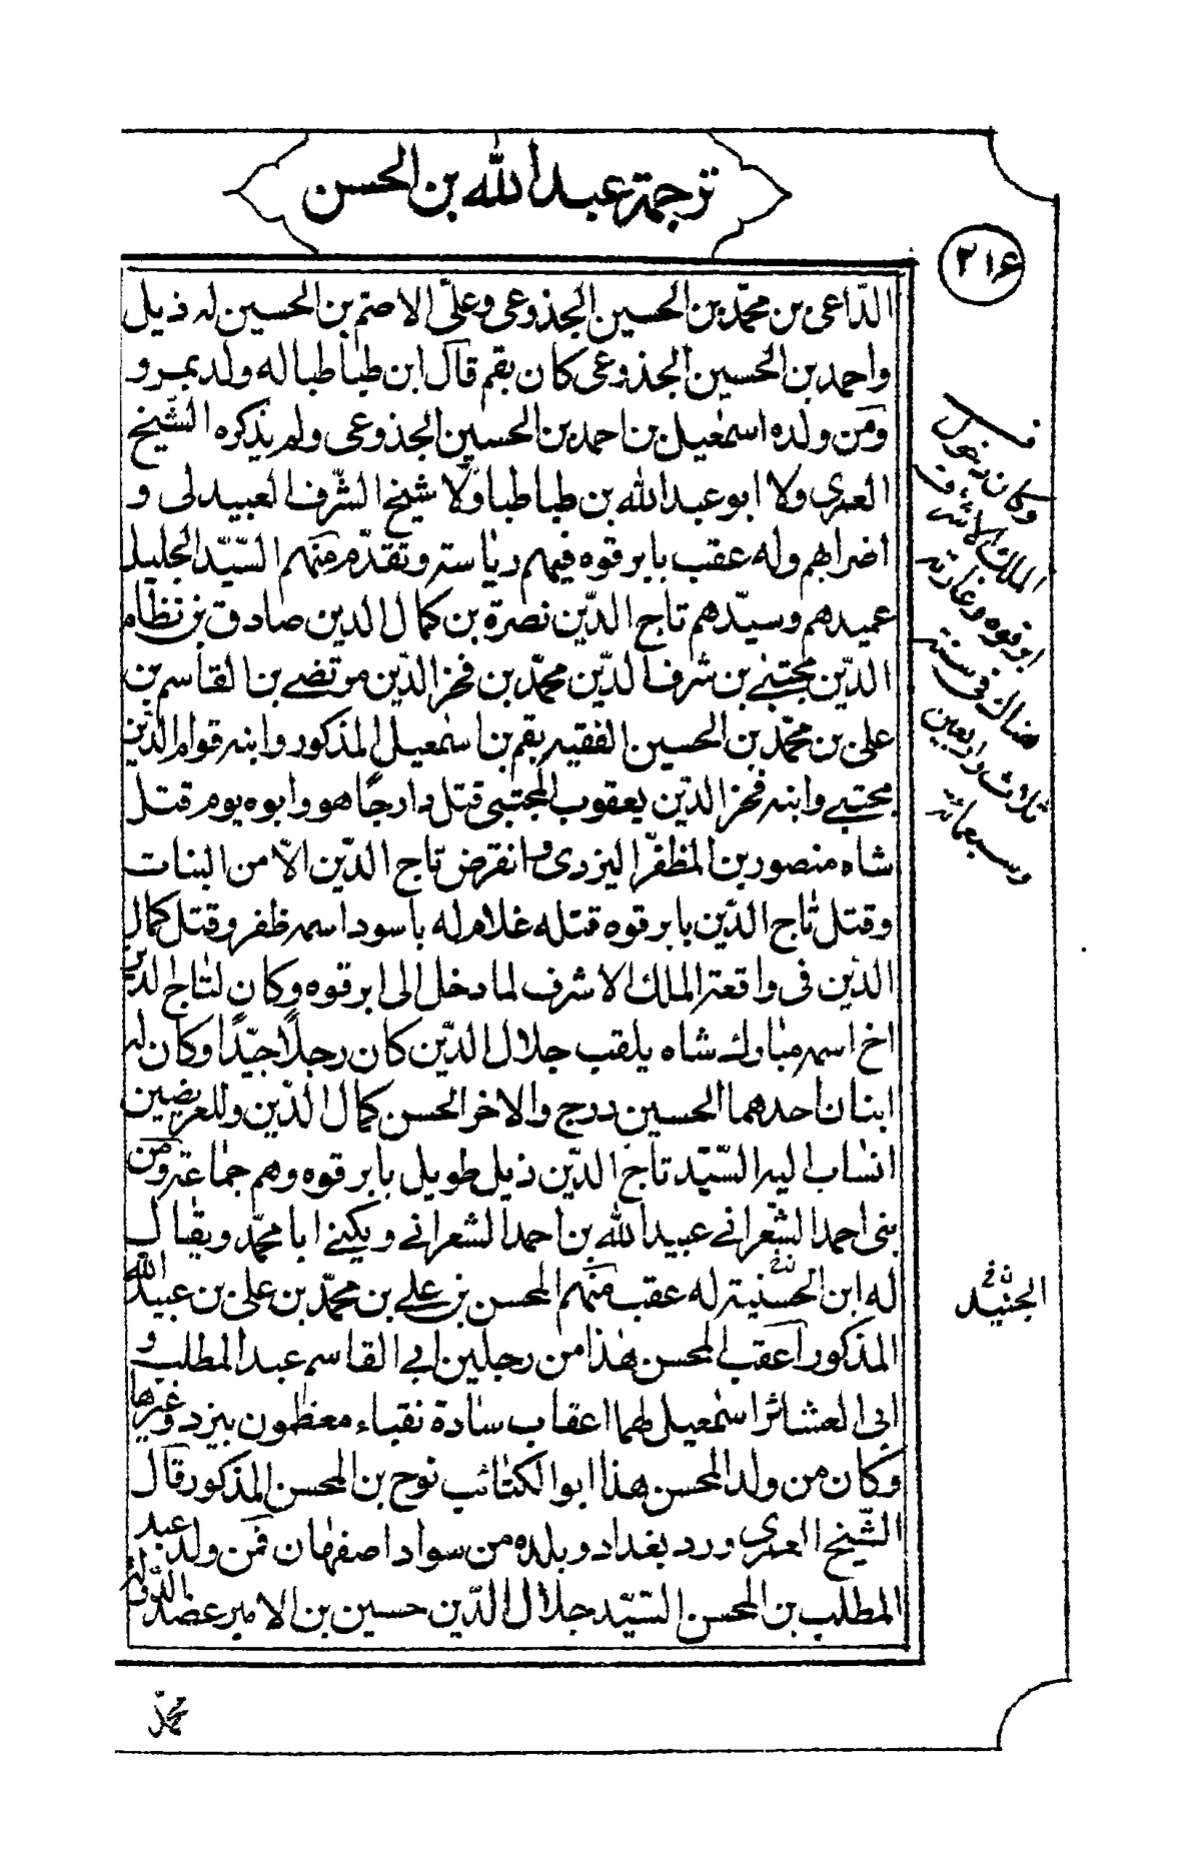 ترجمة عبد الله بن الحسن
٢١٤
الدّاعى بن محمّد بن الحسين الجذوعى وعلىّ الاصمّ بن الحسين له ذيل
واحمد بن الحسين الجذوعى كان بقم قال ابن طباطبا له ولد بمرو
ومن ولده اسمٰعيل بن احمد بن الحسين الجذوعى ولم يذكره الشّيخ
العمرى ولا ابو عبد الله بن طباطبا ولا شيخ الشّرف العبيدلى و
اضرابهم وله عقب بابرقوه فيهم رياسة وتقدّم منهم السّيّد الجليل
عميدهم وسيّدهم تاج الدّين نصرة بن كمال الدين صادق بن نظام
الدّين مجتبى بن شرف الدّين محمّد بن فخر الدّين مرتضى بن القاسم بن
على بن محمّد بن الحسين الفقيه بقم بن اسمٰعيل المذكور وابنه قوام الدّين
مجتبى وابنه فخر الدّين يعقوب المجتبى قتل دارجًا هو وابوه يوم قتل
شاه منصور بن المظفّر اليزدى وانقرض تاج الدّين الّا من البنات
وقتل تاج الدّين بابرقوه قتله غلام له باسود اسمه ظفر وقتل كمال
الدّين فى واقعة الملك الاشرف لما دخل الى ابرقوه وكان لتاج الدّين
اخ اسمه مبارك شاه يلقب جلال الدّين كان رجلًا جيّدًا وكان له
ابنان احدهما الحسين درج والاخر الحسن كمال الدّين وللعريضين
انساب اليه السّيّد تاج الدّين ذيل طويل بابرقوه وهم جماعة ومن
بنى احمد الشّعرانى عبيد الله بن احمد الشعرانى ويكنى ابا محمّد ويقال
له ابن الحسنية له عقب منهم المحسن بن على بن محمّد بن على بن عبيد الله
المذكور اعقب المحسن هذا من رجلين ابى القاسم عبد المطلب و
ابى العشائر اسمٰعيل لهما اعقاب سادة نقباء معظمون بيزد وغيرها
وكان من ولد المحسن هذا ابو الكتائب نوح بن المحسن المذكور قال
الشّيخ العمرى ورد بغداد وبلده من سواد اصفهان فمن ولد عبد
المطلب بن المحسن السّيّد جلال الدّين حسين بن الامير عضد الدّين
محمّد
وكان دخول
الملك الاشرف
ابرقوه وغارته
هناك فى سنة
ثلاث واربعين
وسبعمائة
الجنيد